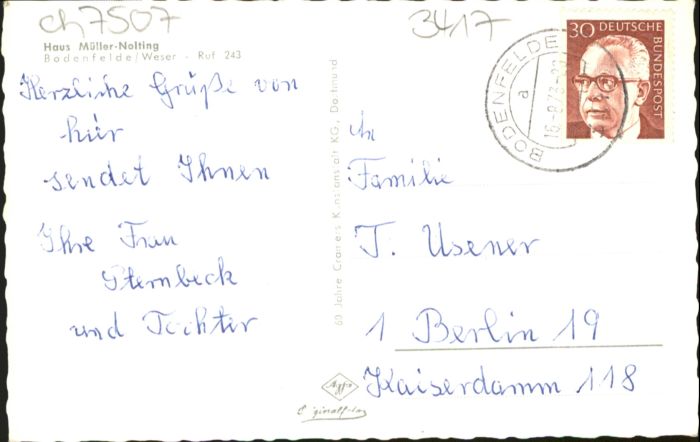 ch7507
3417
Haus Müller-Nolting
Bodenfelde/Weser - Ruf 243
Herzliche Grüße von
hier
sendet Ihnen
Ihre Frau
Sternbeck
und Tochter
60 Jahre Cramers Kunstanstalt KG, Dortmund
An
Familie
T. Usener
1 Berlin 19
Kaiserdamm 118
30 DEUTSCHE
BUNDESPOST
BODENFELDE
a
Agfa